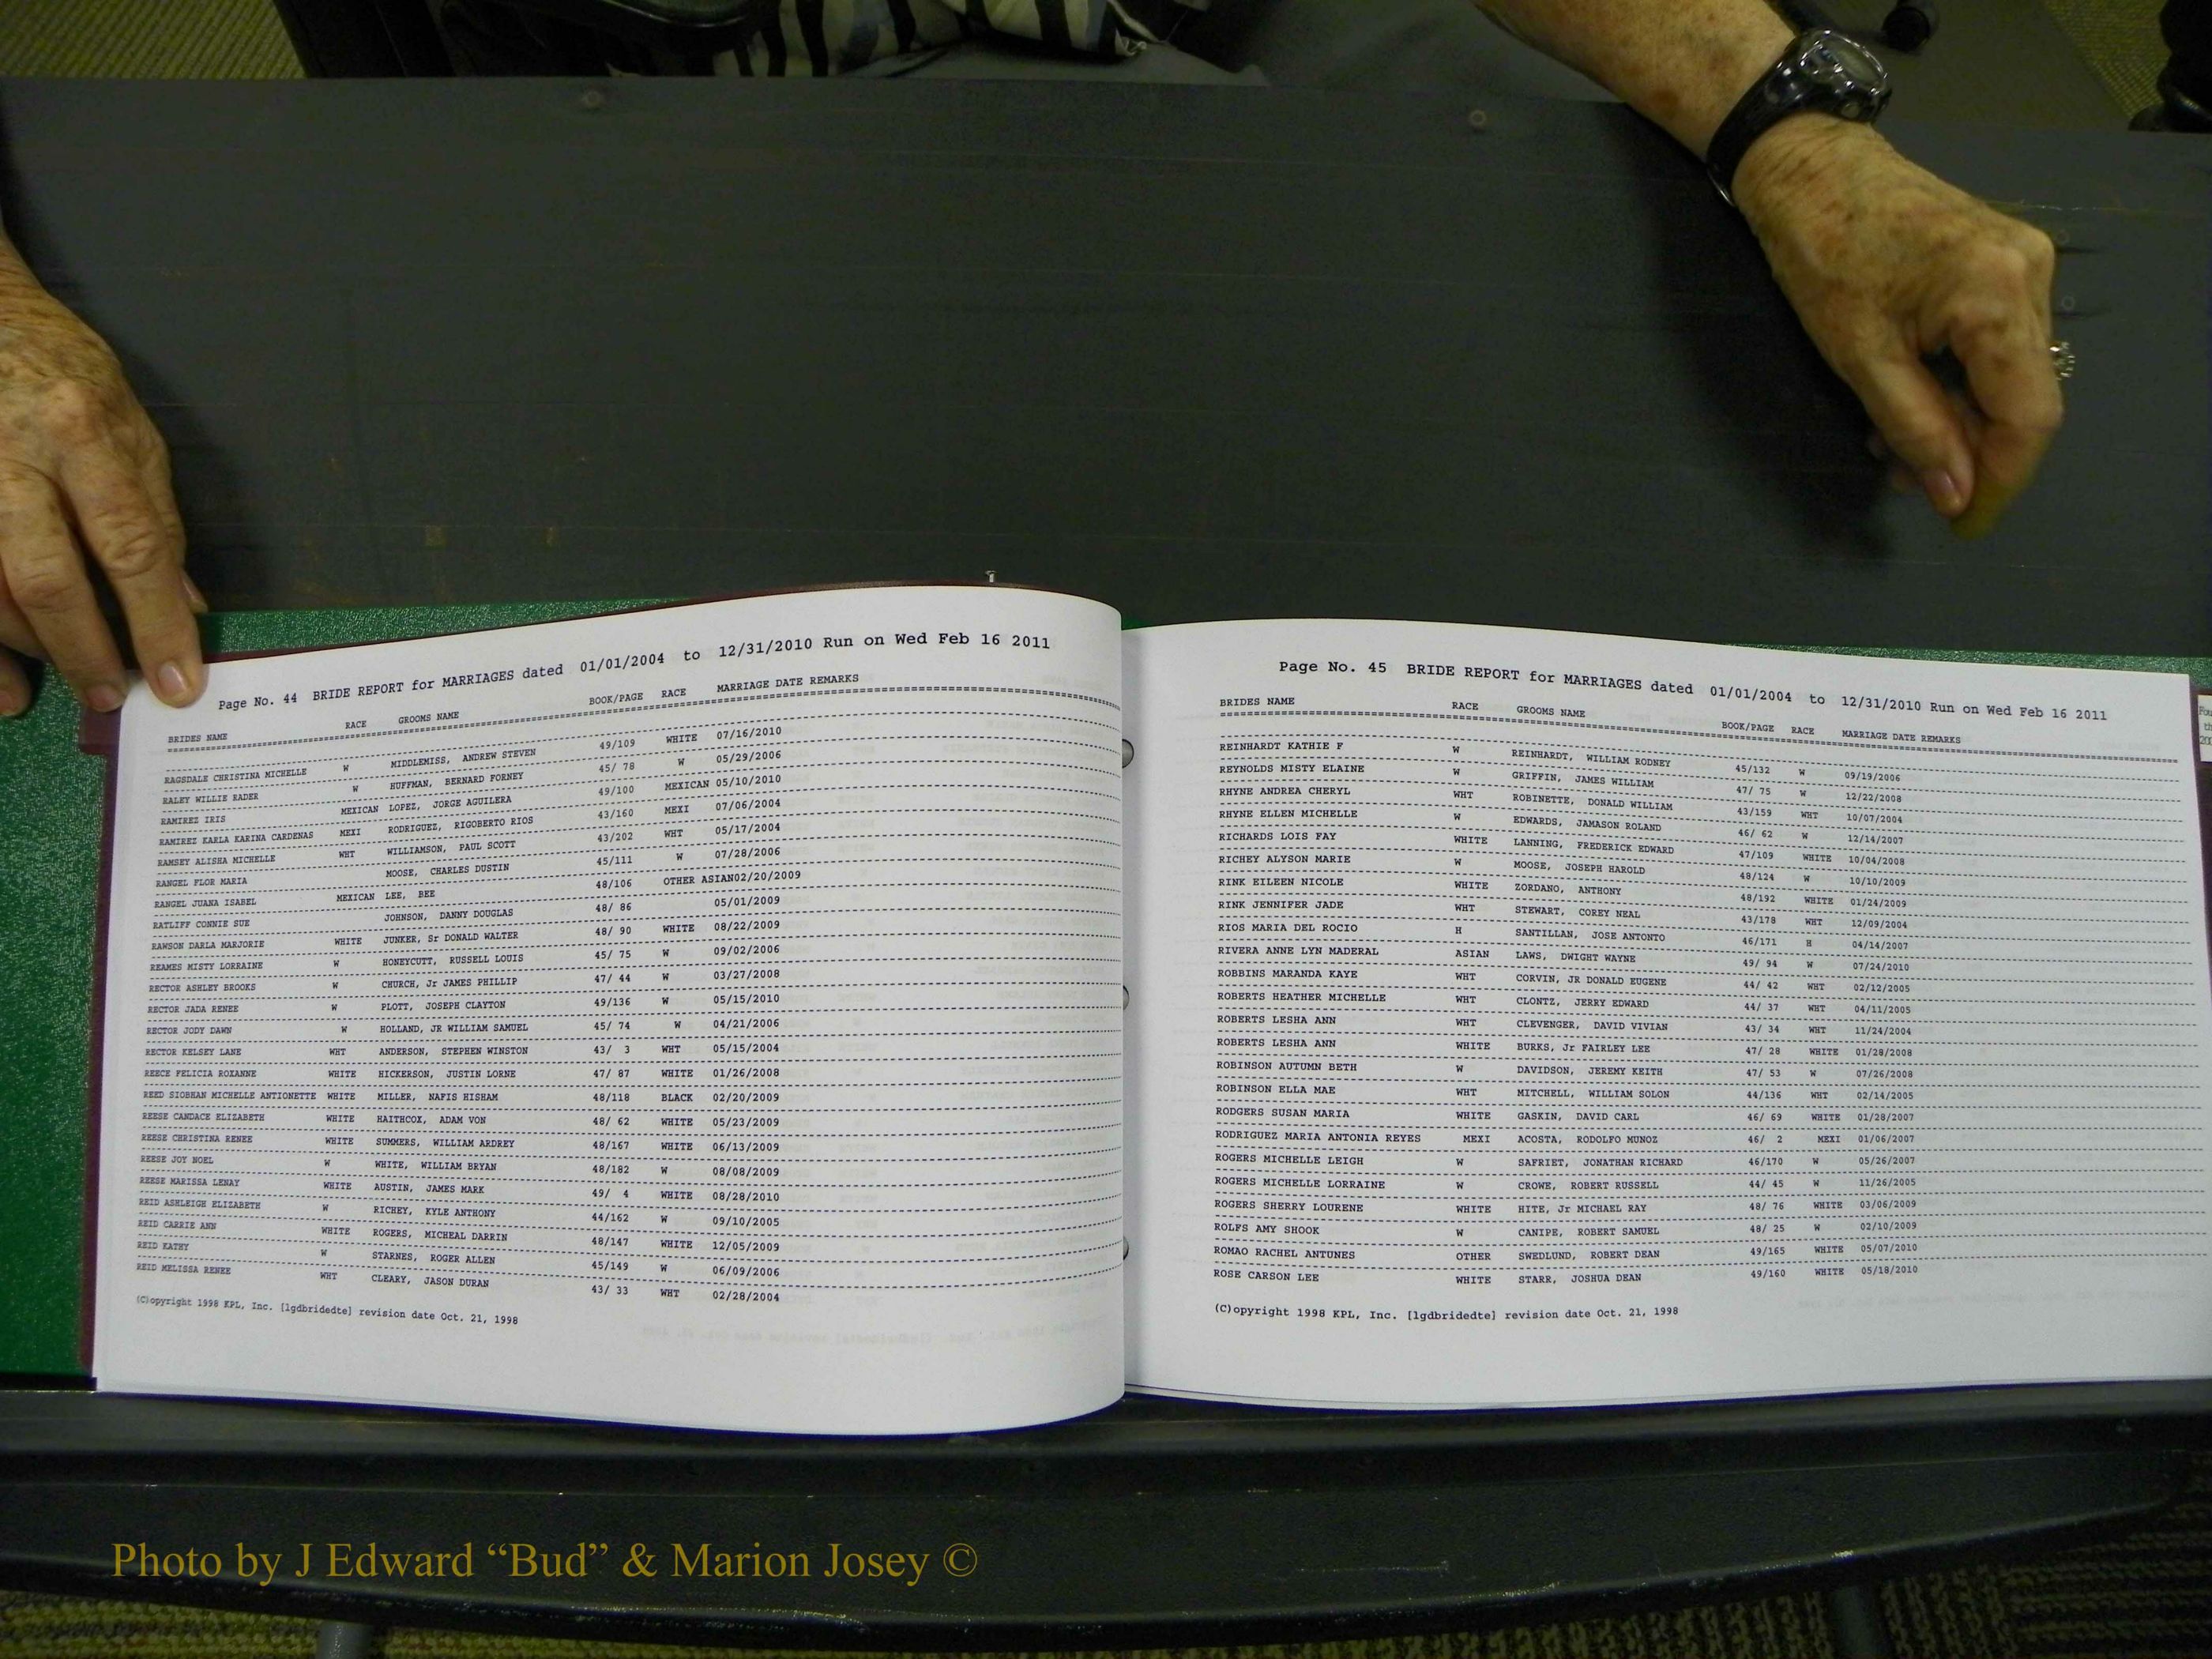 Page No. 44 BRIDE REPORT for MARRIAGES dated 01/01/2004 to 12/31/2010 Run on Wed Feb 16 2011
BRIDES NAME RACE GROOMS NAME BOOK/PAGE RACE MARRIAGE DATE REMARKS
RAGSDALE CHRISTINA MICHELLE W MIDDLEMISS, ANDREW STEVEN 49/109 WHITE 07/16/2010
RALEY WILLIE RADER W HUFFMAN, BERNARD FORNEY 45/ 78 W 05/29/2006
RAMIREZ IRIS MEXICAN LOPEZ, JORGE AGUILERA 49/100 MEXICAN 05/10/2010
RAMIREZ KARLA KARINA CARDENAS MEXI RODRIGUEZ, RIGOBERTO RIOS 43/160 MEXI 07/06/2004
RAMSEY ALISHA MICHELLE WHT WILLIAMSON, PAUL SCOTT 43/202 WHT 05/17/2004
RANGEL FLOR MARIA MOOSE, CHARLES DUSTIN 45/111 W 07/28/2006
RANGEL JUANA ISABEL MEXICAN LEE, BEE 48/106 OTHER ASIAN02/20/2009
RATLIFF CONNIE SUE JOHNSON, DANNY DOUGLAS 48/ 86 05/01/2009
RAWSON DARLA MARJORIE WHITE JUNKER, Sr DONALD WALTER 48/ 90 WHITE 08/22/2009
REAMES MISTY LORRAINE W HONEYCUTT, RUSSELL LOUIS 45/ 75 W 09/02/2006
RECTOR ASHLEY BROOKS W CHURCH, Jr JAMES PHILLIP 47/ 44 W 03/27/2008
RECTOR JADA RENEE W PLOTT, JOSEPH CLAYTON 49/136 W 05/15/2010
RECTOR JODY DAWN W HOLLAND, JR WILLIAM SAMUEL 45/ 74 W 04/21/2006
RECTOR KELSEY LANE WHT ANDERSON, STEPHEN WINSTON 43/ 3 WHT 05/15/2004
REECE FELICIA ROXANNE WHITE HICKERSON, JUSTIN LORNE 47/ 87 WHITE 01/26/2008
REED SIOBHAN MICHELLE ANTIONETTE WHITE MILLER, NAFIS HISHAM 48/118 BLACK 02/20/2009
REESE CANDACE ELIZABETH WHITE HAITHCOX, ADAM VON 48/ 62 WHITE 05/23/2009
REESE CHRISTINA RENEE WHITE SUMMERS, WILLIAM ARDREY 48/167 WHITE 06/13/2009
REESE JOY NOEL W WHITE, WILLIAM BRYAN 48/182 W 08/08/2009
REESE MARISSA LENAY WHITE AUSTIN, JAMES MARK 49/ 4 WHITE 08/28/2010
REID ASHLEIGH ELIZABETH W RICHEY, KYLE ANTHONY 44/162 W 09/10/2005
REID CARRIE ANN WHITE ROGERS, MICHEAL DARRIN 48/147 WHITE 12/05/2009
REID KATHY W STARNES, ROGER ALLEN 45/149 W 06/09/2006
REID MELISSA RENEE WHT CLEARY, JASON DURAN 43/ 33 WHT 02/28/2004
(C)opyright 1998 KPL, Inc. [lgdbridedte] revision date Oct. 21, 1998
Page No. 45 BRIDE REPORT for MARRIAGES dated 01/01/2004 to 12/31/2010 Run on Wed Feb 16 2011
BRIDES NAME RACE GROOMS NAME BOOK/PAGE RACE MARRIAGE DATE REMARKS
REINHARDT KATHIE F W REINHARDT, WILLIAM RODNEY 45/132 W 09/19/2006
REYNOLDS MISTY ELAINE W GRIFFIN, JAMES WILLIAM 47/ 75 W 12/22/2008
RHYNE ANDREA CHERYL WHT ROBINETTE, DONALD WILLIAM 43/159 WHT 10/07/2004
RHYNE ELLEN MICHELLE W EDWARDS, JAMASON ROLAND 46/ 62 W 12/14/2007
RICHARDS LOIS FAY WHITE LANNING, FREDERICK EDWARD 47/109 WHITE 10/04/2008
RICHEY ALYSON MARIE W MOOSE, JOSEPH HAROLD 48/124 W 10/10/2009
RINK EILEEN NICOLE WHITE ZORDANO, ANTHONY 48/192 WHITE 01/24/2009
RINK JENNIFER JADE WHT STEWART, COREY NEAL 43/178 WHT 12/09/2004
RIOS MARIA DEL ROCIO H SANTILLAN, JOSE ANTONTO 46/171 H 04/14/2007
RIVERA ANNE LYN MADERAL ASIAN LAWS, DWIGHT WAYNE 49/ 94 W 07/24/2010
ROBBINS MARANDA KAYE WHT CORVIN, JR DONALD EUGENE 44/ 42 WHT 02/12/2005
ROBERTS HEATHER MICHELLE WHT CLONTZ, JERRY EDWARD 44/ 37 WHT 04/11/2005
ROBERTS LESHA ANN WHT CLEVENGER, DAVID VIVIAN 43/ 34 WHT 11/24/2004
ROBERTS LESHA ANN WHITE BURKS, Jr FAIRLEY LEE 47/ 28 WHITE 01/28/2008
ROBINSON AUTUMN BETH W DAVIDSON, JEREMY KEITH 47/ 53 W 07/26/2008
ROBINSON ELLA MAE WHT MITCHELL, WILLIAM SOLON 44/136 WHT 02/14/2005
RODGERS SUSAN MARIA WHITE GASKIN, DAVID CARL 46/ 69 WHITE 01/28/2007
RODRIGUEZ MARIA ANTONIA REYES MEXI ACOSTA, RODOLFO MUNOZ 46/ 2 MEXI 01/06/2007
ROGERS MICHELLE LEIGH W SAFRIET, JONATHAN RICHARD 46/170 W 05/26/2007
ROGERS MICHELLE LORRAINE W CROWE, ROBERT RUSSELL 44/ 45 W 11/26/2005
ROGERS SHERRY LOURENE WHITE HITE, Jr MICHAEL RAY 48/ 76 WHITE 03/06/2009
ROLFS AMY SHOOK W CANIPE, ROBERT SAMUEL 48/ 25 W 02/10/2009
ROMAO RACHEL ANTUNES OTHER SWEDLUND, ROBERT DEAN 49/165 WHITE 05/07/2010
ROSE CARSON LEE WHITE STARR, JOSHUA DEAN 49/160 WHITE 05/18/2010
(C)opyright 1998 KPL, Inc. [lgdbridedte] revision date Oct. 21, 1998
Photo by J Edward “Bud” & Marion Josey ©